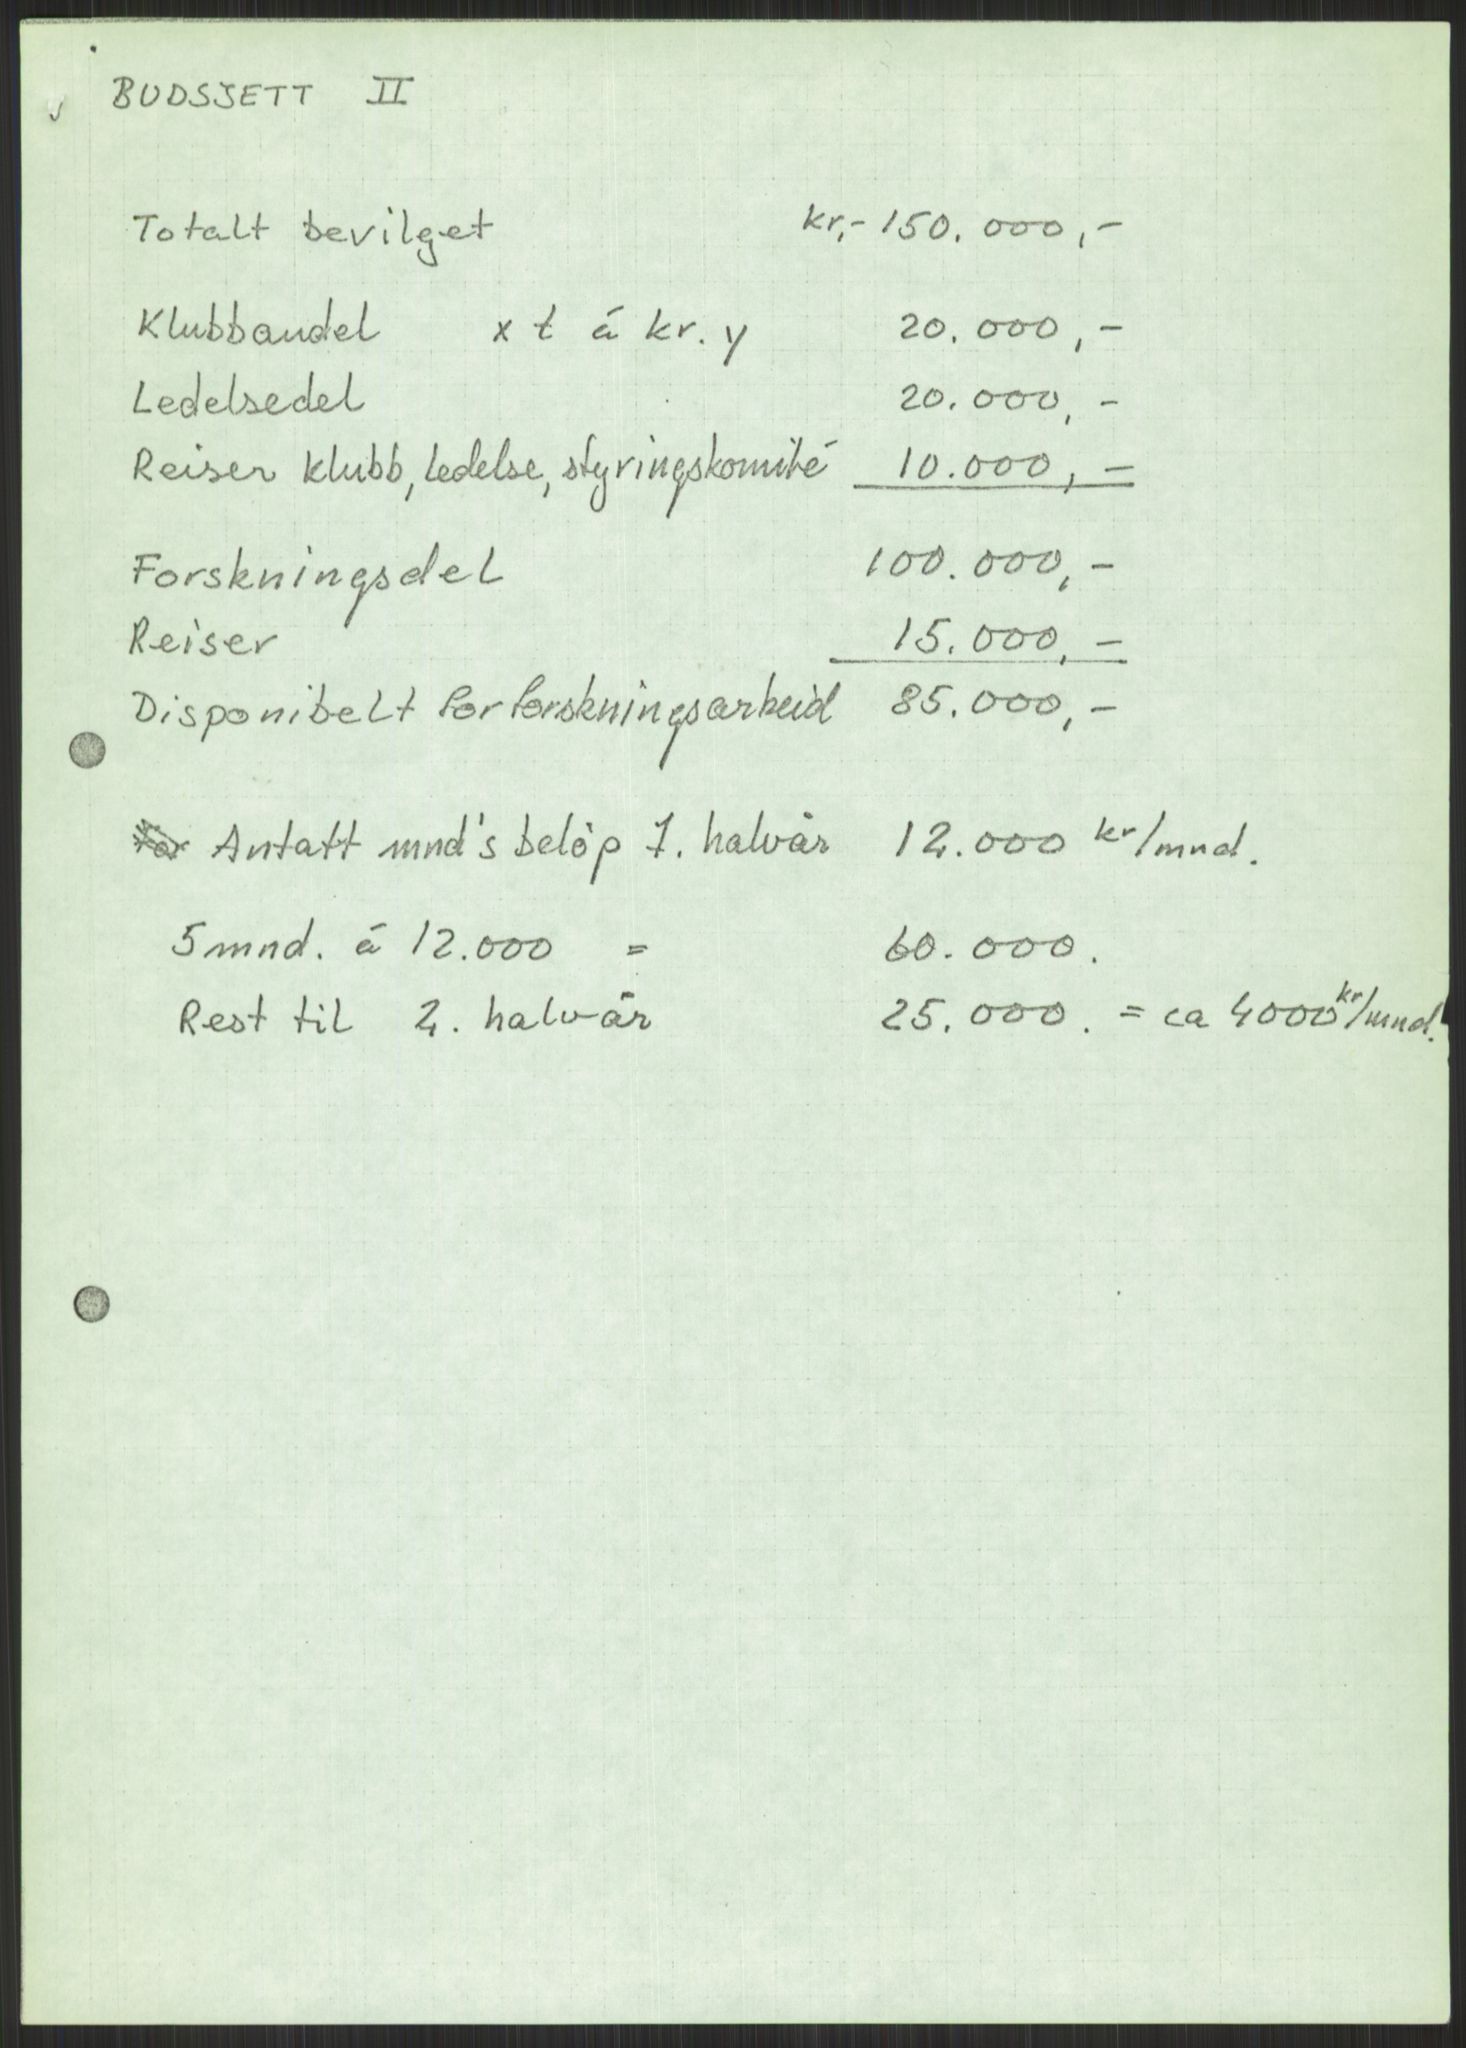 BUDSJETT II
Totalt bevilget kr,- 150.000,-
Klubbandel x t á kr. y 20.000,-
Ledelsedel 20.000,-
Reiser klubb, ledelse, styringskomité 10.000,-
Forskningsdel 100.000,-
Reiser 15.000,-
Disponibelt for forskningsarbeid 85.000,-
For Antatt mnd's beløp 1. halvår 12.000 kr/mnd.
5 mnd. á 12.000 = 60.000.
Rest til 2. halvår 25.000. = ca 4000 kr/mnd.